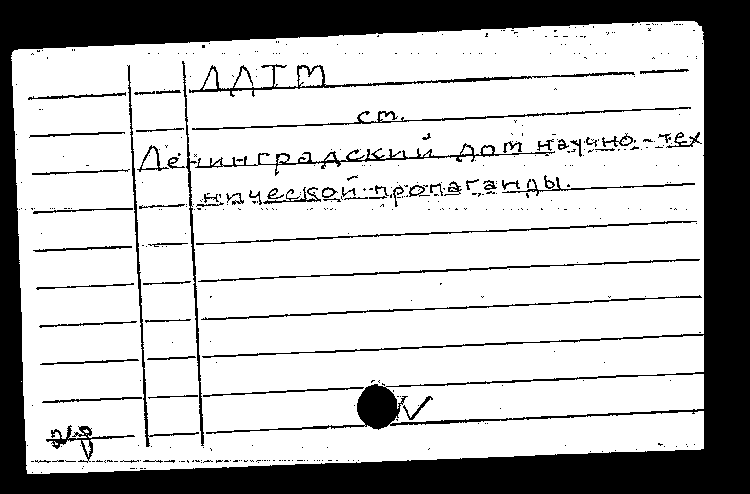 ЛДТМ
ст.
Ленинградский дом научно-тех
нической пропаганды.